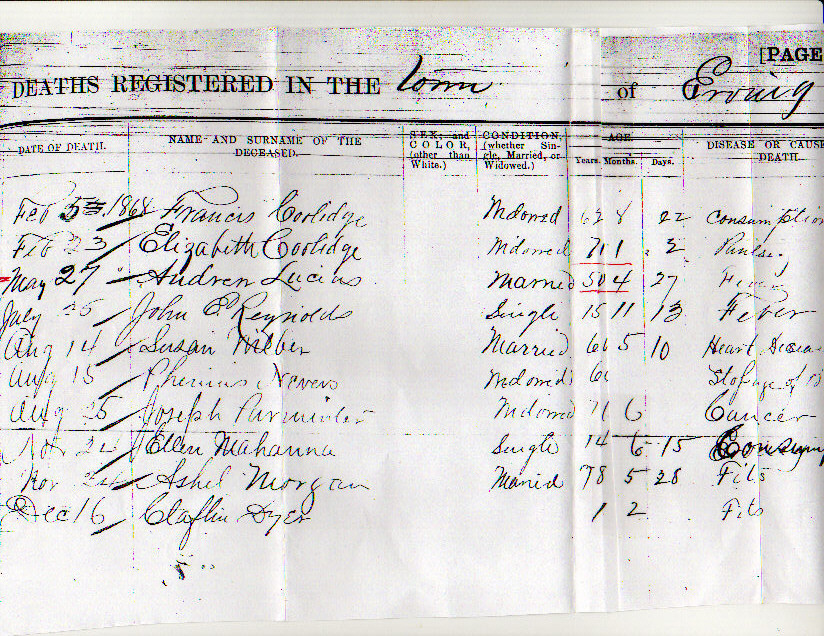 [PAGE
DEATHS REGISTERED IN THE town of Erving
DATE OF DEATH. NAME AND SURNAME OF THE DECEASED. SEX, and COLOR, (other than White.) CONDITION, (whether Single, Married, or Widowed.) AGE. Years. Months. Days. DISEASE OR CAUSE DEATH.
Feb 5 1868 Francis Coolidge Widowed 62 8 22 Consumption
Feb 23 Elizabeth Coolidge Widowed 71 1 2
May 27 Andrew Lucius Married 50 4 27 Fever
July 26 John E Reynolds Single 15 11 13 Fever
Aug 14 Susan Wilber Married 66 5 10 Heart Disea
Aug 15 Nevers Widowed of
Aug 25 Joseph Parminter Widowed 71 6 Cancer
Nov 24 Ellen Mahanna Single 14 6 15 Consump
Nov 24 Ashel Morgan Married 78 5 28 Fits
Dec 16 Claflin Dyer 1 2 Fits